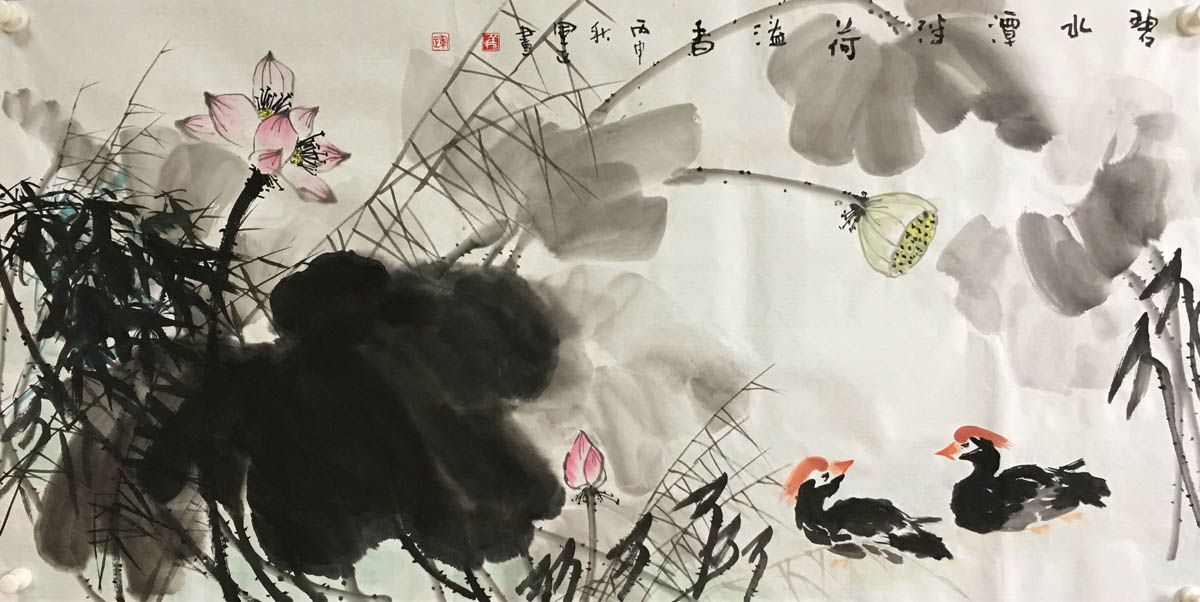 碧水潭深荷溢香
丙申
秋